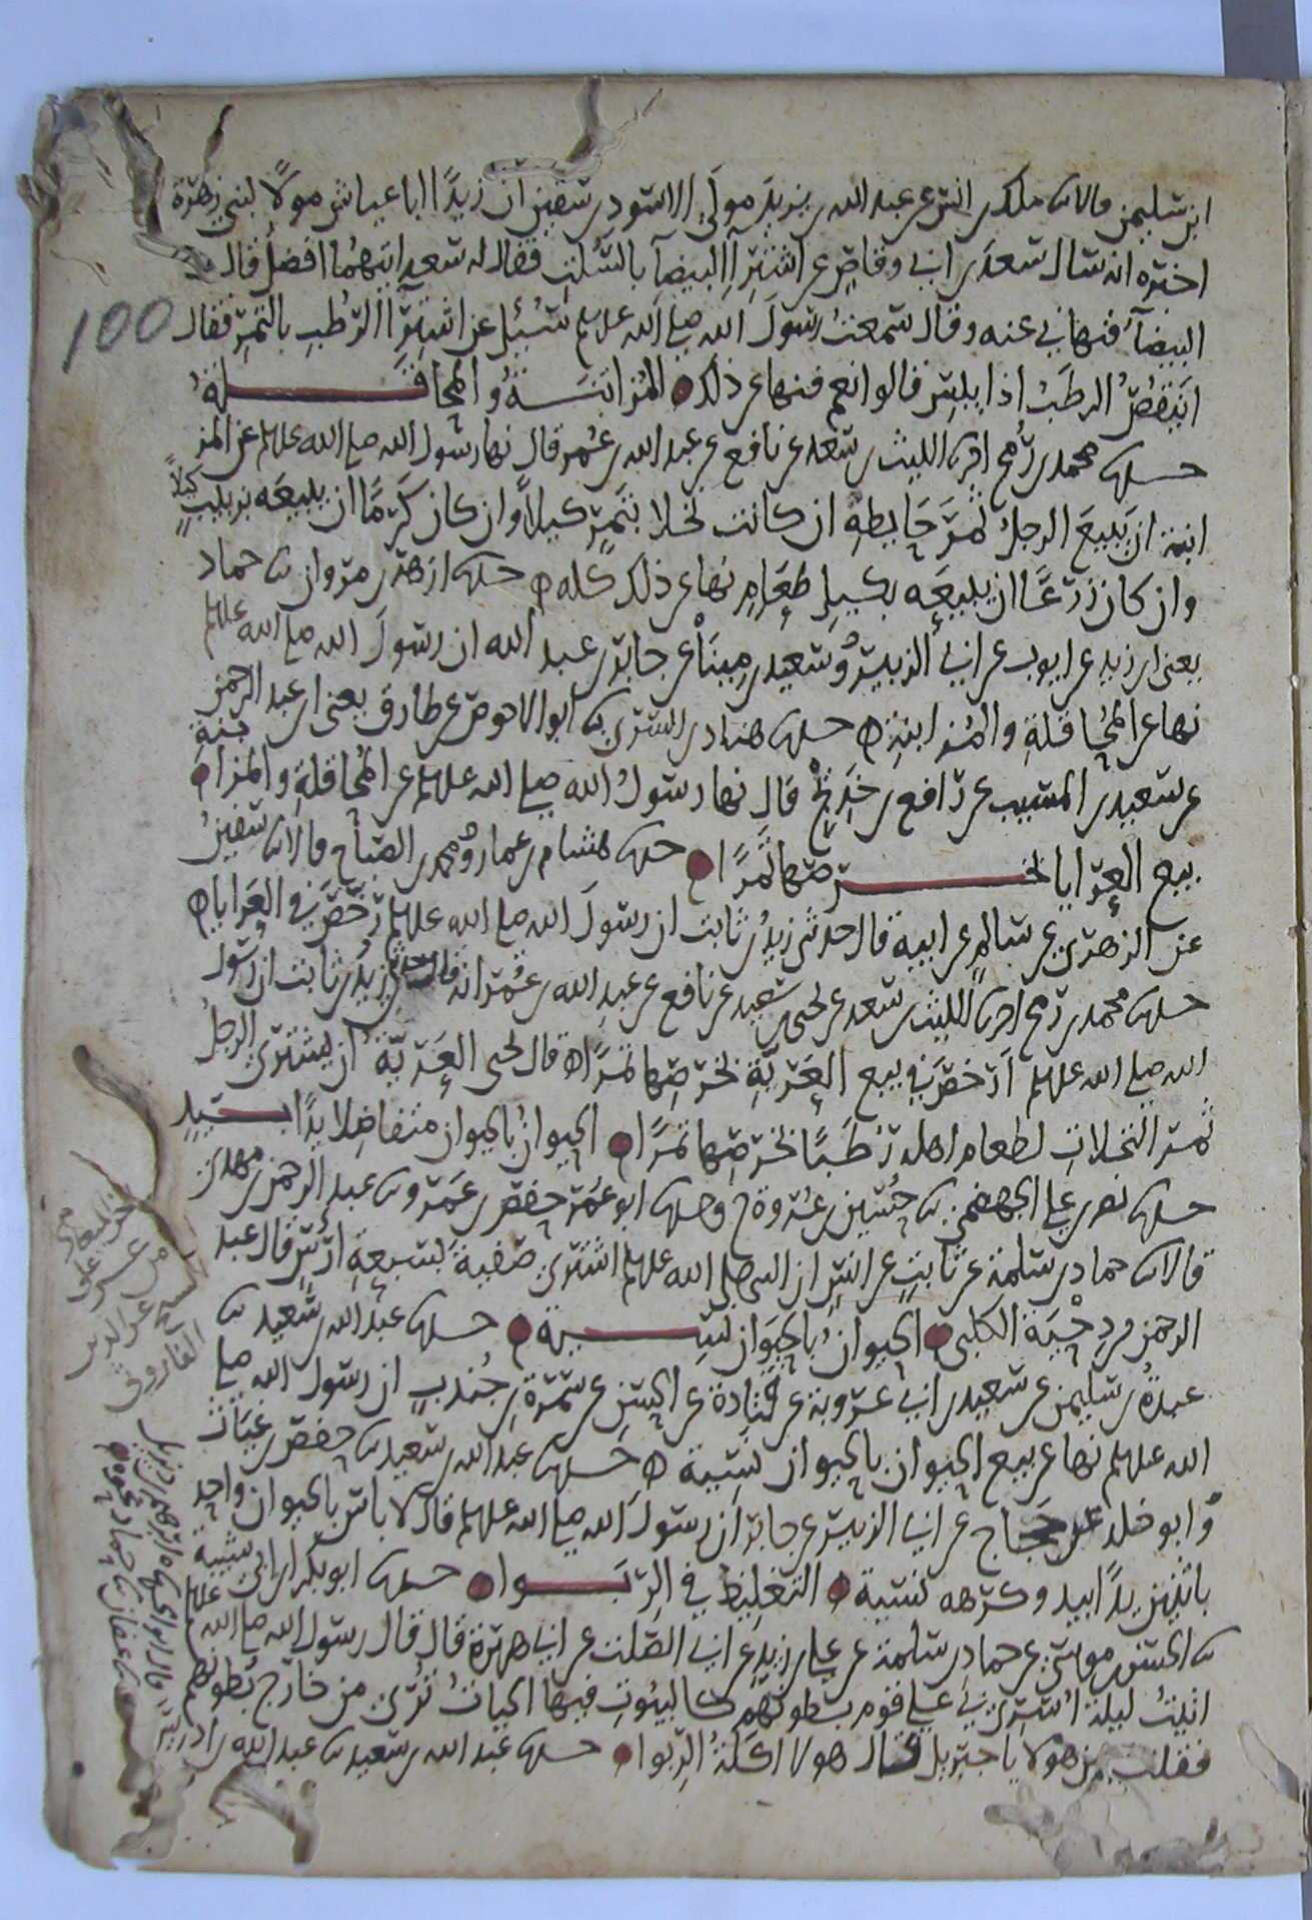 ابن سليمن قالا نا ملك بن انس عن عبد الله بن يزيد مولى الاسود بن سفين ان زيدا ابا عياش مولا لبني زهرة
اخبره انه سال سعد بن ابي وقاص عن اشترا البيضا بالسلت فقال له سعد ايتهما افضل قال
البيضا فنهاني عنه وقال سمعت رسول الله صلى الله علىه وسلم سئل عن اشترا الرطب بالتمر فقال
100
اينقص الرطب اذا يبس قالوا نعم فنها عن ذلك المزابنة والمحاقلة
حدثنا محمد بن رمح اخبرنا الليث بن سعد عن نافع عن عبد الله بن عمر قال نها رسول الله صلى الله علىه وسلم عن المز
ابنة ان يبيع الرجل ثمر حايطه ان كانت نخلا بتمر كيلا وان كان كرما ان يبيعه بزبيب كيلا
وان كان زرعا ان يبيعه بكيل طعام نها عن ذلك كله حدثنا ازهر بن مروان نا حماد
يعني ابن زيد عن ايوب عن ابي الزبير وسعيد بن مينا عن جابر بن عبد الله ان رسول الله صلى الله علىه وسلم
نها عن المحاقلة والمزابنة حدثنا هناد بن السري نا ابو الاحوص عن طارق يعني ابن عبد الرحمن
عن سعيد بن المسيب عن رافع بن خديج قال نها رسول الله صلى الله علىه وسلم عن المحاقلة والمزابنة
بيع العرايا بخرصها تمرا حدثنا هشام بن عمار ومحمد بن الصباح قالا نا سفين
عن الزهري عن سالم عن ابيه قال حدثني زيد بن ثابت ان رسول الله صلى الله علىه وسلم رخص في العرايا
حدثنا محمد بن رمح اخبرنا الليث بن سعد عن يحيى بن سعيد عن نافع عن عبد الله بن عمر انه قال حدثني زيد بن ثابت ان رسول
الله صلى الله علىه وسلم ارخص في بيع العرية بخرصها تمرا قال يحيى العرية ان يشتري الرجل
ثمر النخلات لطعام اهله رطبا بخرصها تمرا الحيوان بالحيوان متفاضلا يدا بيد
حدثنا نصر بن علي الجهضمي نا حسين بن عروة ح وحدثنا ابو عمر حفص بن عمرو نا عبد الرحمن بن مهدي
قالا نا حماد بن سلمة عن ثابت عن انس ان النبي صلى الله علىه وسلم اشترى صفية بسبعة ارؤس قال عبد
الرحمن من دحية الكلبي الحيوان بالحيوان نسية حدثنا عبد الله بن سعيد نا
عبدة بن سليمن عن سعيد بن ابي عروبة عن قتادة عن الحسن عن سمرة بن جندب ان رسول الله صلى
الله علىه وسلم نها عن بيع الحيوان بالحيوان نسية حدثنا عبد الله بن سعيد نا حفص بن غياث
وابو خلد عن حجاج عن ابي الزبير عن جابر ان رسول الله صلى الله علىه وسلم قال لا باس بالحيوان واحد
باثنين يدا بيد وكرهه نسية التغليظ في الربوا حدثنا ابو بكر بن ابي شيبة
نا الحسن بن موسى عن حماد بن سلمة عن علي بن زيد عن ابي الصلت عن ابي هريرة قال قال رسول الله صلى الله علىه وسلم
اتيت ليلة اسري بي على قوم بطونهم كالبيوت فيها الحيات ترى من خارج بطونهم
فقلت من هولا يا جبريل قال هولا اكلة الربوا حدثنا عبد الله بن سعيد نا عبد الله بن ادريس
عز الدين
الفاروقي